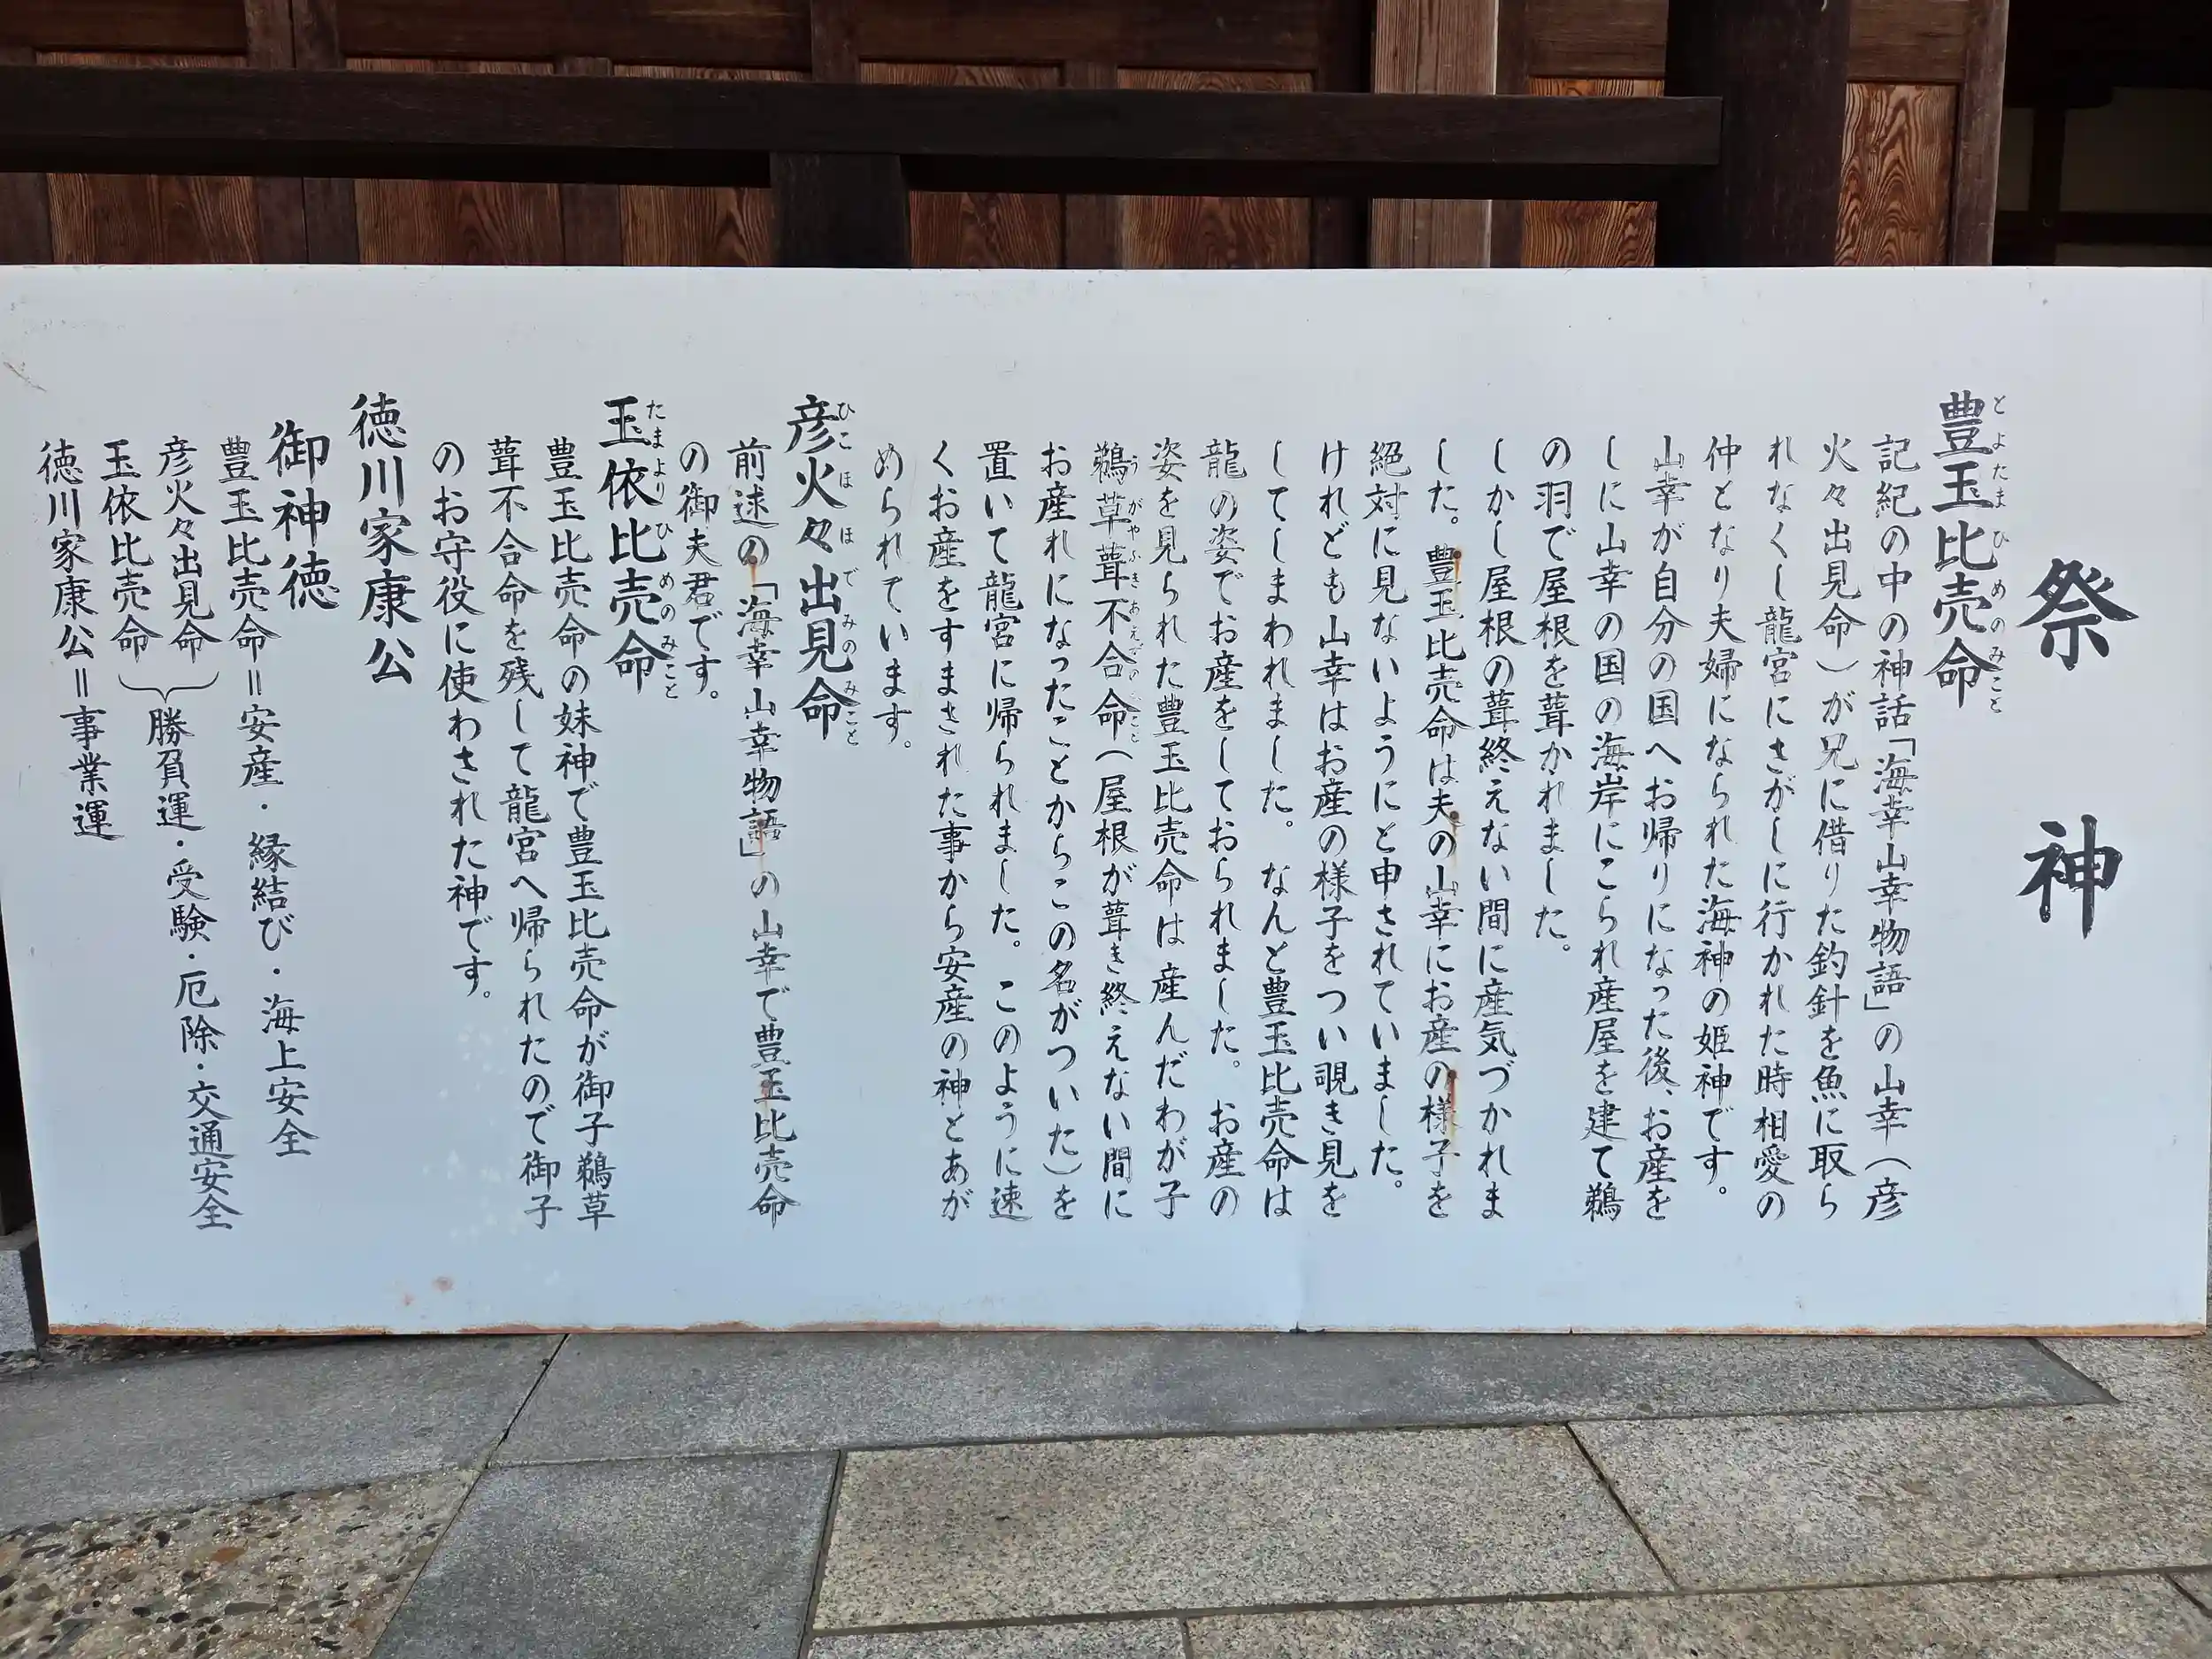 祭神
豊玉比売命
とよたまひめのみこと
記紀の中の神話「海幸山幸物語」の山幸（彦
火々出見命）が兄に借りた釣針を魚に取ら
れなくし龍宮にさがしに行かれた時相愛の
仲となり夫婦になられた海神の姫神です。
山幸が自分の国へお帰りになった後、お産を
しに山幸の国の海岸にこられ産屋を建て鵜
の羽で屋根を葺かれました。
しかし屋根の葺終えない間に産気づかれま
した。豊玉比売命は夫の山幸にお産の様子を
絶対に見ないようにと申されていました。
けれども山幸はお産の様子をつい覗き見を
してしまわれました。なんと豊玉比売命は
龍の姿でお産をしておられました。お産の
姿を見られた豊玉比売命は産んだわが子
鵜草葺不合命（屋根が葺き終えない間に
うがやふきあえずのみこと
お産れになったことからこの名がついた）を
置いて龍宮に帰られました。このように速
くお産をすまされた事から安産の神とあが
められています。
彦火々出見命
ひこほほでみのみこと
前述の「海幸山幸物語」の山幸で豊玉比売命
の御夫君です。
玉依比売命
たまよりひめのみこと
豊玉比売命の妹神で豊玉比売命が御子鵜草
葺不合命を残して龍宮へ帰られたので御子
のお守役に使わされた神です。
徳川家康公
御神徳
豊玉比売命＝安産・縁結び・海上安全
彦火々出見命
玉依比売命
勝負運・受験・厄除・交通安全
徳川家康公＝事業運